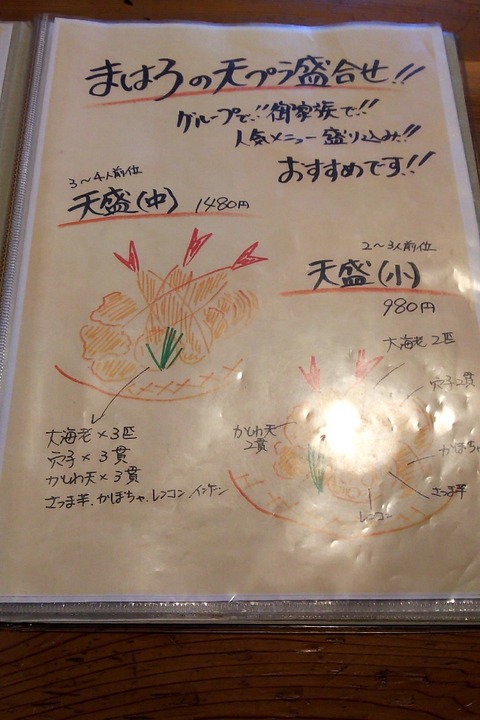 まほろの天プラ盛合せ!!
グループで!!御家族で!!
人気メニュー盛り込み!!
おすすめです!!
3〜4人前位
天盛(中) 1480円
2〜3人前位
天盛(小)
980円
大海老2匹
穴子2貫
かしわ天
2貫
かぼちゃ
さつま芋
レンコン
大海老×3匹
穴子×3貫
かしわ天×3貫
さつま芋、かぼちゃ、レンコン、インゲン